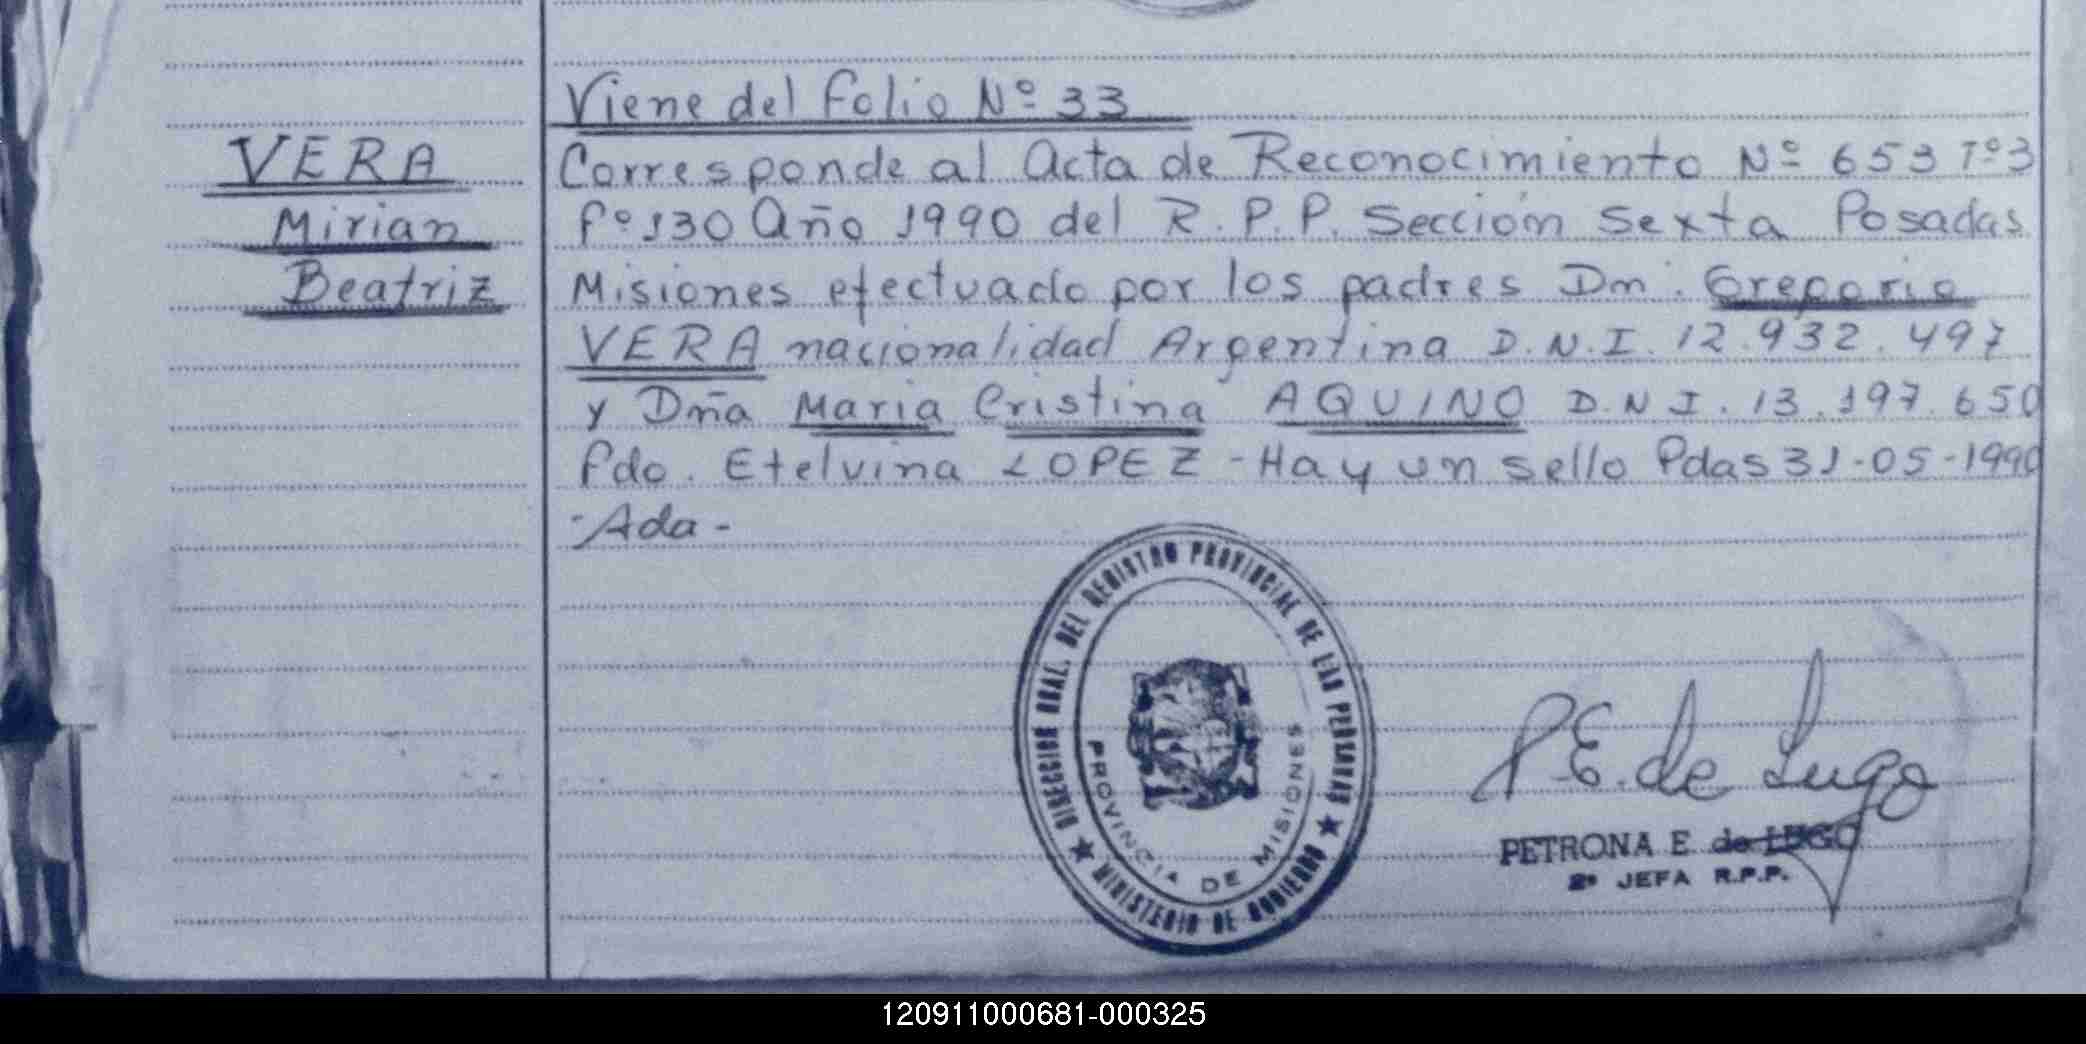 Viene del folio Nº 33
VERA
Mirian
Beatriz
Corresponde al Acta de Reconocimiento Nº 653 Tº3
fº 130 Año 1990 del R.P.P. Sección Sexta Posadas
Misiones efectuado por los padres Dn. Gregorio
VERA nacionalidad Argentina D.N.I. 12.932.497
y Dña Maria Cristina AQUINO D.N.I. 13.197.650
fdo. Etelvina LOPEZ - Hay un sello Pdas 31-05-1990
-Ada-
DIRECCION GRAL. DEL REGISTRO PROVINCIAL DE LAS PERSONAS
★ MINISTERIO DE GOBIERNO ★
PROVINCIA DE MISIONES
P.E. de Lugo
PETRONA E. de LUGO
2º JEFA R.P.P.
120911000681-000325